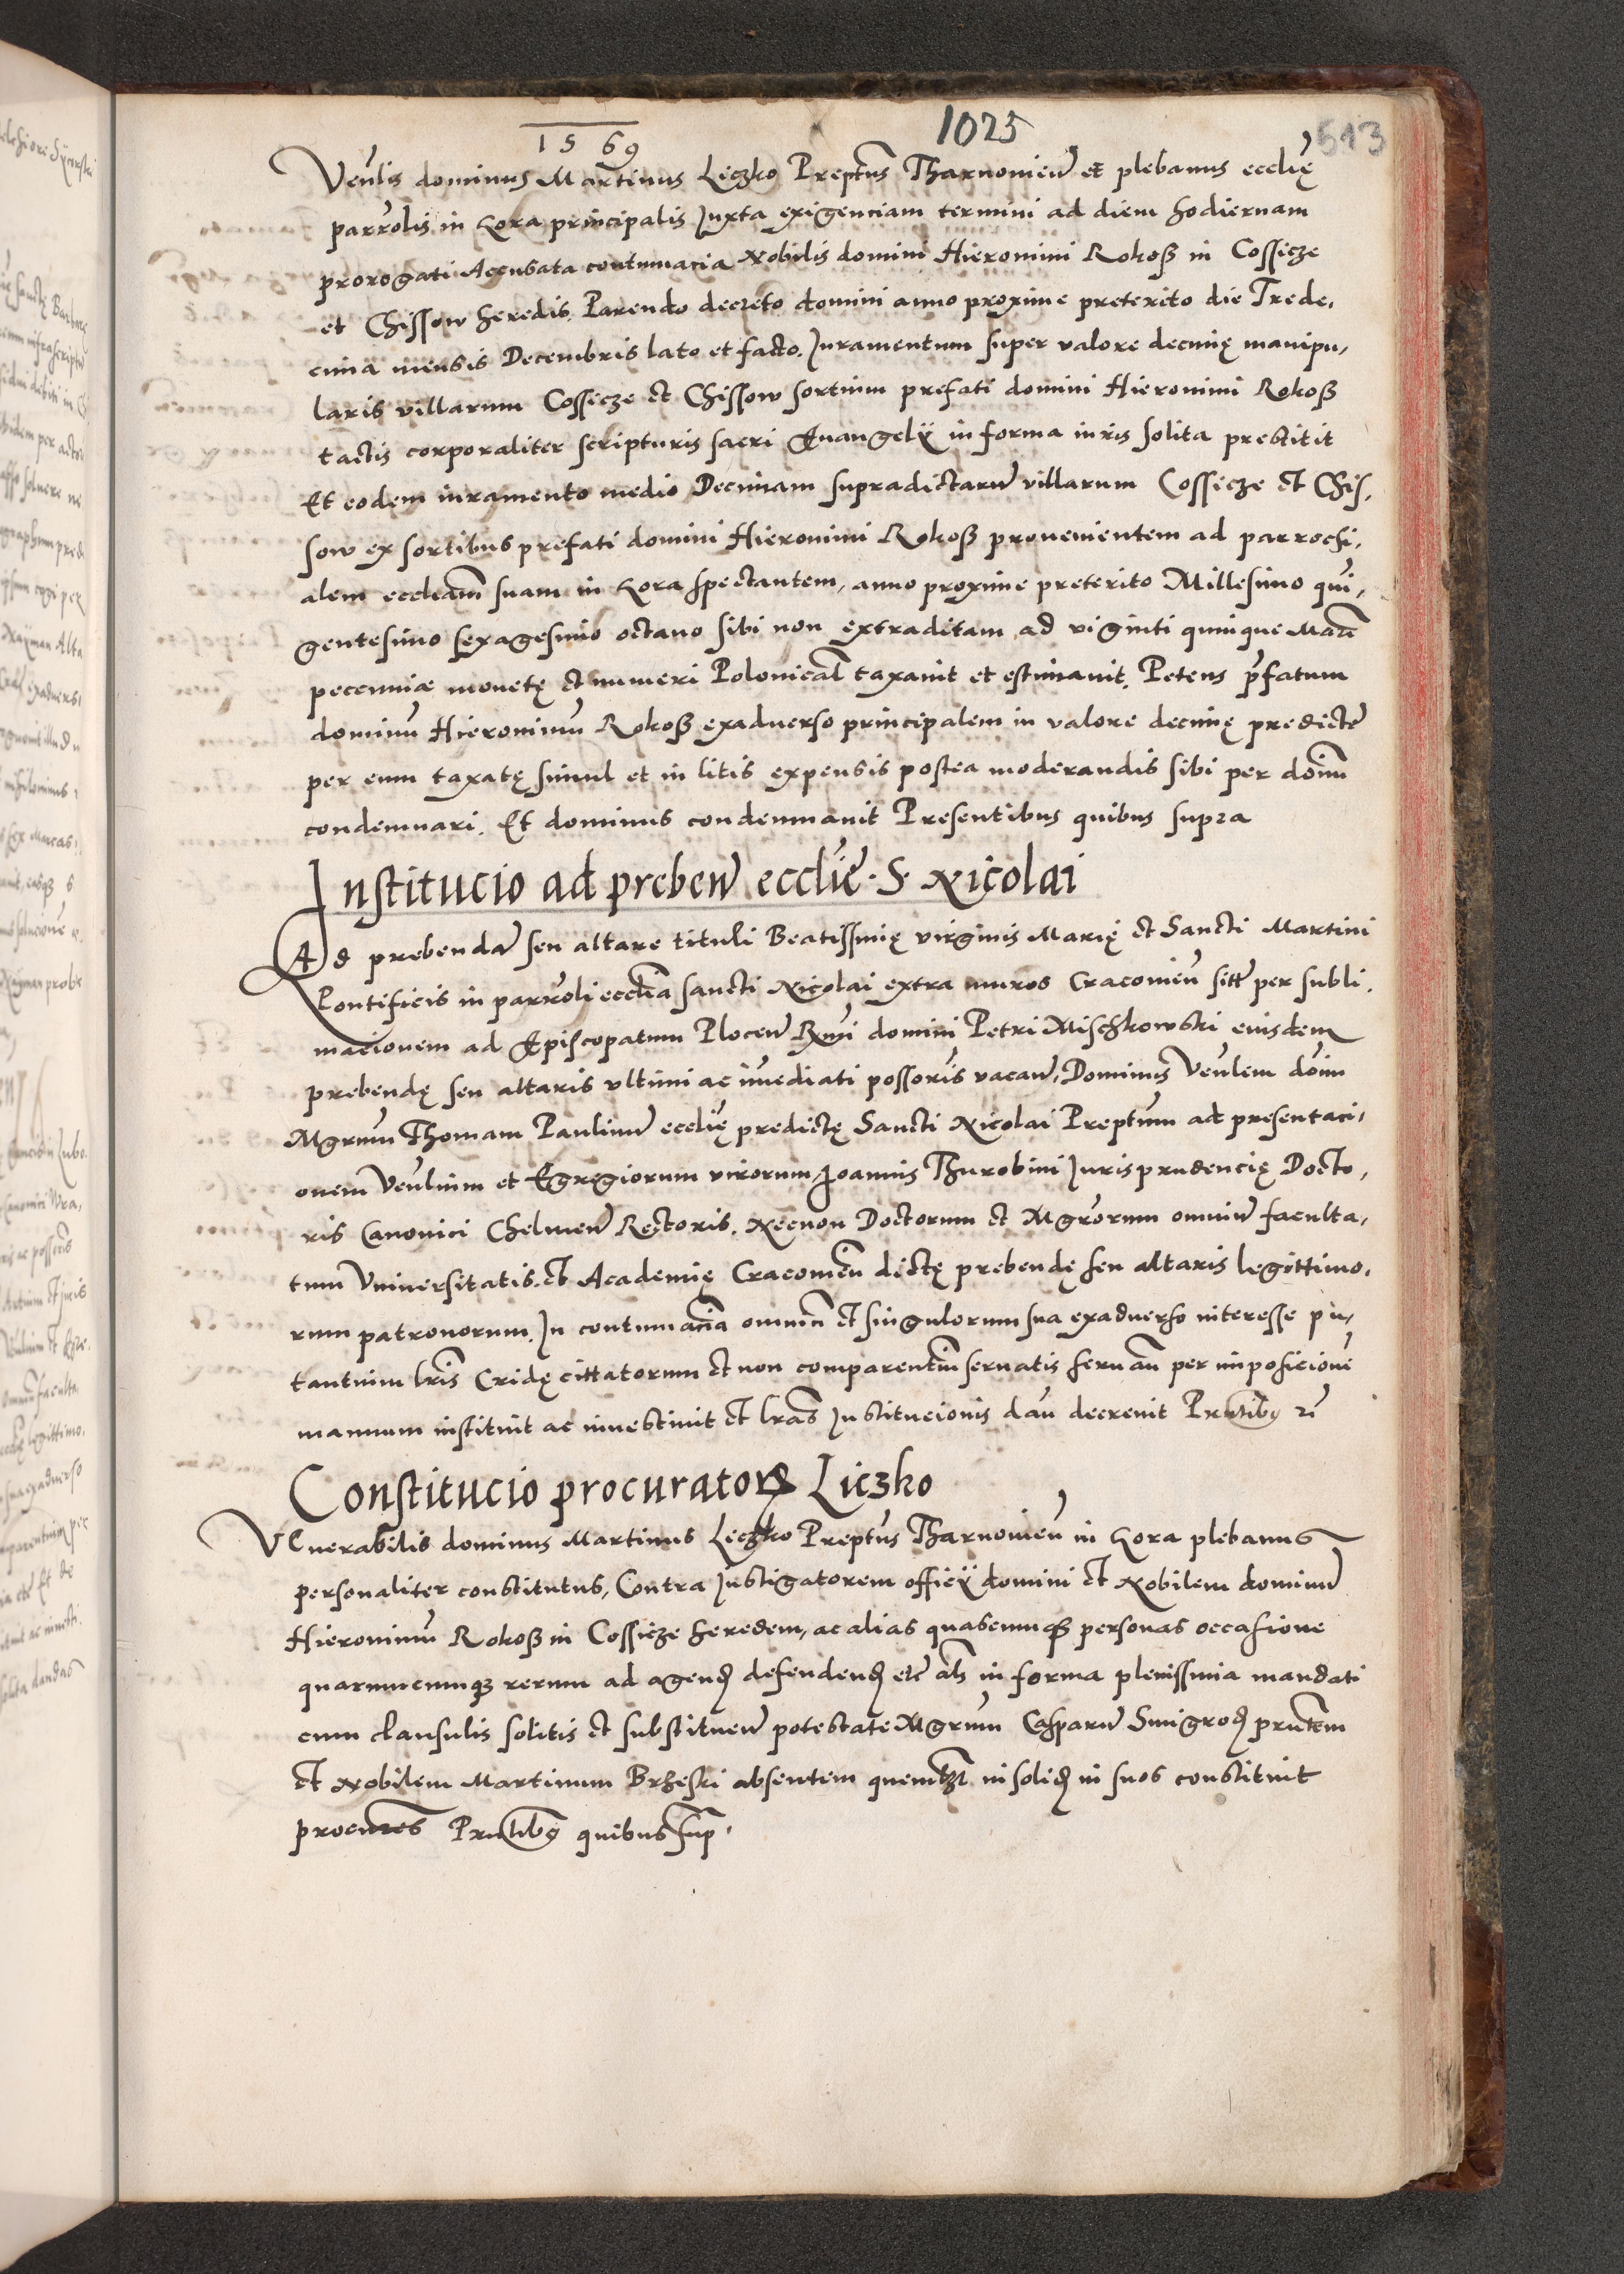 1569
1025
513
Venlis dominus Martinus Liczko Preptus Tharnouien et plebanus ecclię
parrolis in Gora principalis Juxta exigenciam termini ad diem hodiernam
prorogati Accusata contumacia Nobilis domini Hieronimi Rokosß in Cossicze
et Chissow heredis. Parendo decreto domini anno proxime preterito die Trede,
cima mensis Decembris lato et facto. Juramentum super valore decimę manipu,
laris villarum Cossicze et Chissow sortium prefati domini Hieronimi Rokosß
tactis corporaliter scripturis sacri Euangelÿ in forma iuris solita prestitit
Et eodem iuramento medio Decimam supradictarum villarum Cossicze et Chis,
sow ex sortibus prefati domini Hieronimi Rokosß prouenientem ad parrochi,
alem eccliam suam in Gora spectantem, anno proxime preterito Millesimo qui,
gentesimo sexagesimo octauo sibi non extraditam ad viginti quinque Marcas
pecuniæ monetę et numeri Polonicalis taxauit et estimauit. Petens prefatum
dominum Hieronimum Rokosß exaduerso principalem in valore decimę predicte
per eum taxatę simul et in litis expensis postea moderandis sibi per dominum
condemnari. Et dominus condemnauit Presentibus quibus supra
Institucio ad preben ecclie · S · Nicolai
Ad prebendam seu altare tituli Beatissimę virginis Marię et Sancti Martini
Pontificis in parroli ecclia sancti Nicolai extra muros Cracouien sitt per subli,
macionem ad Episcopatum Plocen Rmi domini Petri Mischkowski eiusdem
prebendę seu altaris vltimi ac imediati possoris vacan, Dominus Venlem dom
Mgrum Thomam Paulinum ecclię predictę Sancti Nicolai Preptum ad presentaci,
onem Venlium et Egregiorum virorum Joannis Thurobini Jurisprudencię Docto,
ris Canonici Chelmen Rectoris. Necnon Doctorum et Mgrorum omnium faculta,
tum Vniuersitatis et Academię Cracouien dictę prebendę seu altaris legittimo,
rum patronorum. In contumaciam omnium et singulorum sua exaduerso interesse pu,
tantium lris Cridę cittatorum et non comparentium seruatis seruan per imposicione
manuum instituit ac inuestiuit et lras Institucionis dan decreuit Prntibus ri
Constitucio procurator Liczko
Venerabilis dominus Martinus Liczko Preptus Tharnouien in Gora plebanus
personaliter constitutus, Contra Instigatorem officÿ domini et Nobilem dominum
Hieronimum Rokosß in Cossicze heredem, ac alias quascunque personas occasione
quarumcumque rerum ad agend defendend etc als in forma plenissima mandati
cum clausulis solitis et substituen potestate Mgrum Casparum Smigrod prntem
et Nobilem Martinum Brzeski absentem quemlibet in solid in suos constituit
procures Prntibus quibus sup.